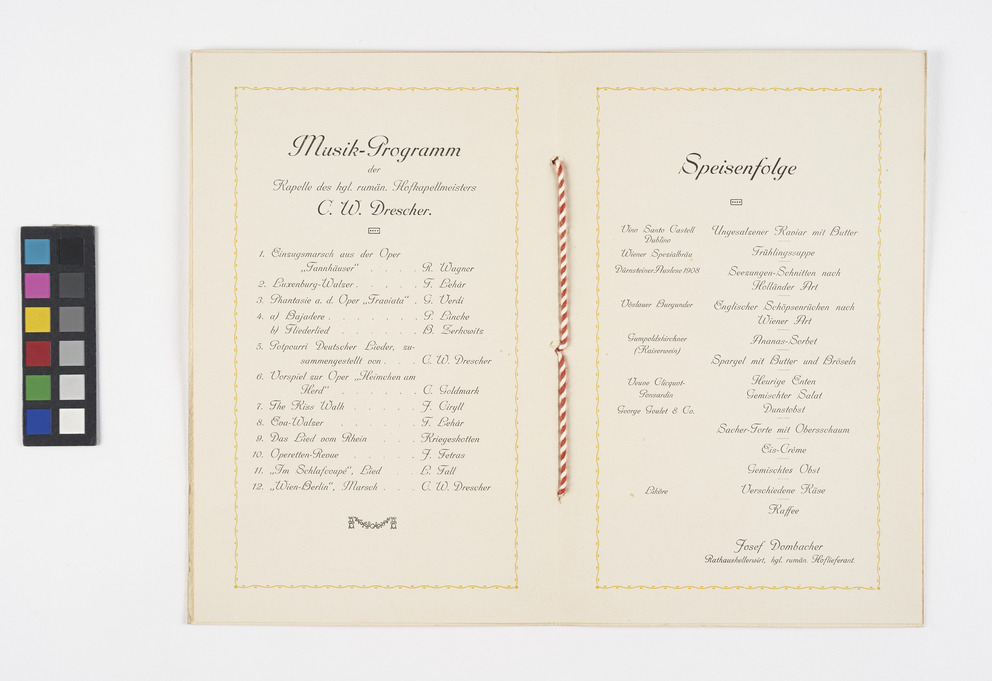 Musik-Programm
der
Kapelle des kgl. rumän. Hofkapellmeisters
C. W. Drescher.
1. Einzugsmarsch aus der Oper
„Tannhäuser“ . . . . . R. Wagner
2. Luxenburg-Walzer . . . . . F. Lehár
3. Phantasie a. d. Oper „Traviata“ . G. Verdi
4. a) Bajadere . . . . . . . P. Lincke
b) Fliederlied . . . . . . B. Zerkowitz
5. Potpourri Deutscher Lieder, zu-
sammengestellt von . . . . C. W. Drescher
6. Vorspiel zur Oper „Heimchen am
Herd“ . . . . . . . C. Goldmark
7. The Kiss Walk . . . . . J. Ciryll
8. Eva-Walzer . . . . . . F. Lehár
9. Das Lied vom Rhein . . . . Kriegeskotten
10. Operetten-Revue . . . . . J. Fetras
11. „Im Schlafcoupé“, Lied . . . L. Fall
12. „Wien-Berlin“, Marsch . . . C. W. Drescher
Speisenfolge
Vino Santo Castell
Dublino
Wiener Spezialbräu
Dürnsteiner Auslese 1908
Vöslauer Burgunder
Gumpoldskirchner
(Kaiserwein)
Veuve Clicquot-
Ponsardin
George Goulet & Co.
Liköre
Ungesalzener Kaviar mit Butter
Frühlingssuppe
Seezungen-Schnitten nach
Holländer Art
Englischer Schöpsenrücken nach
Wiener Art
Ananas-Sorbet
Spargel mit Butter und Bröseln
Heurige Enten
Gemischter Salat
Dunstobst
Sacher-Torte mit Obersschaum
Eis-Crème
Gemischtes Obst
Verschiedene Käse
Kaffee
Josef Dombacher
Rathauskellerwirt, kgl. rumän. Hoflieferant.